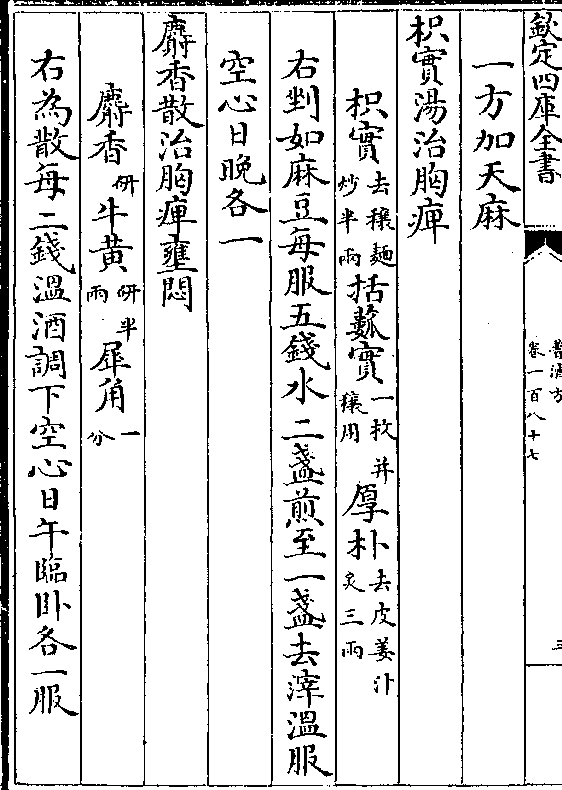 欽定四庫全書
普濟方
卷一百八十七
三
一方加天麻
枳實湯治胸痺
枳實去穰麵炒半兩括蔞實一枚并穰用厚朴去皮姜汁炙三兩
右剉如麻豆每服五錢水二盞煎至一盞去滓温服
空心日晚各一
麝香散治胸痺壅悶
麝香研牛黄研半兩犀角一分
右為散每二錢温酒調下空心日午臨卧各一服